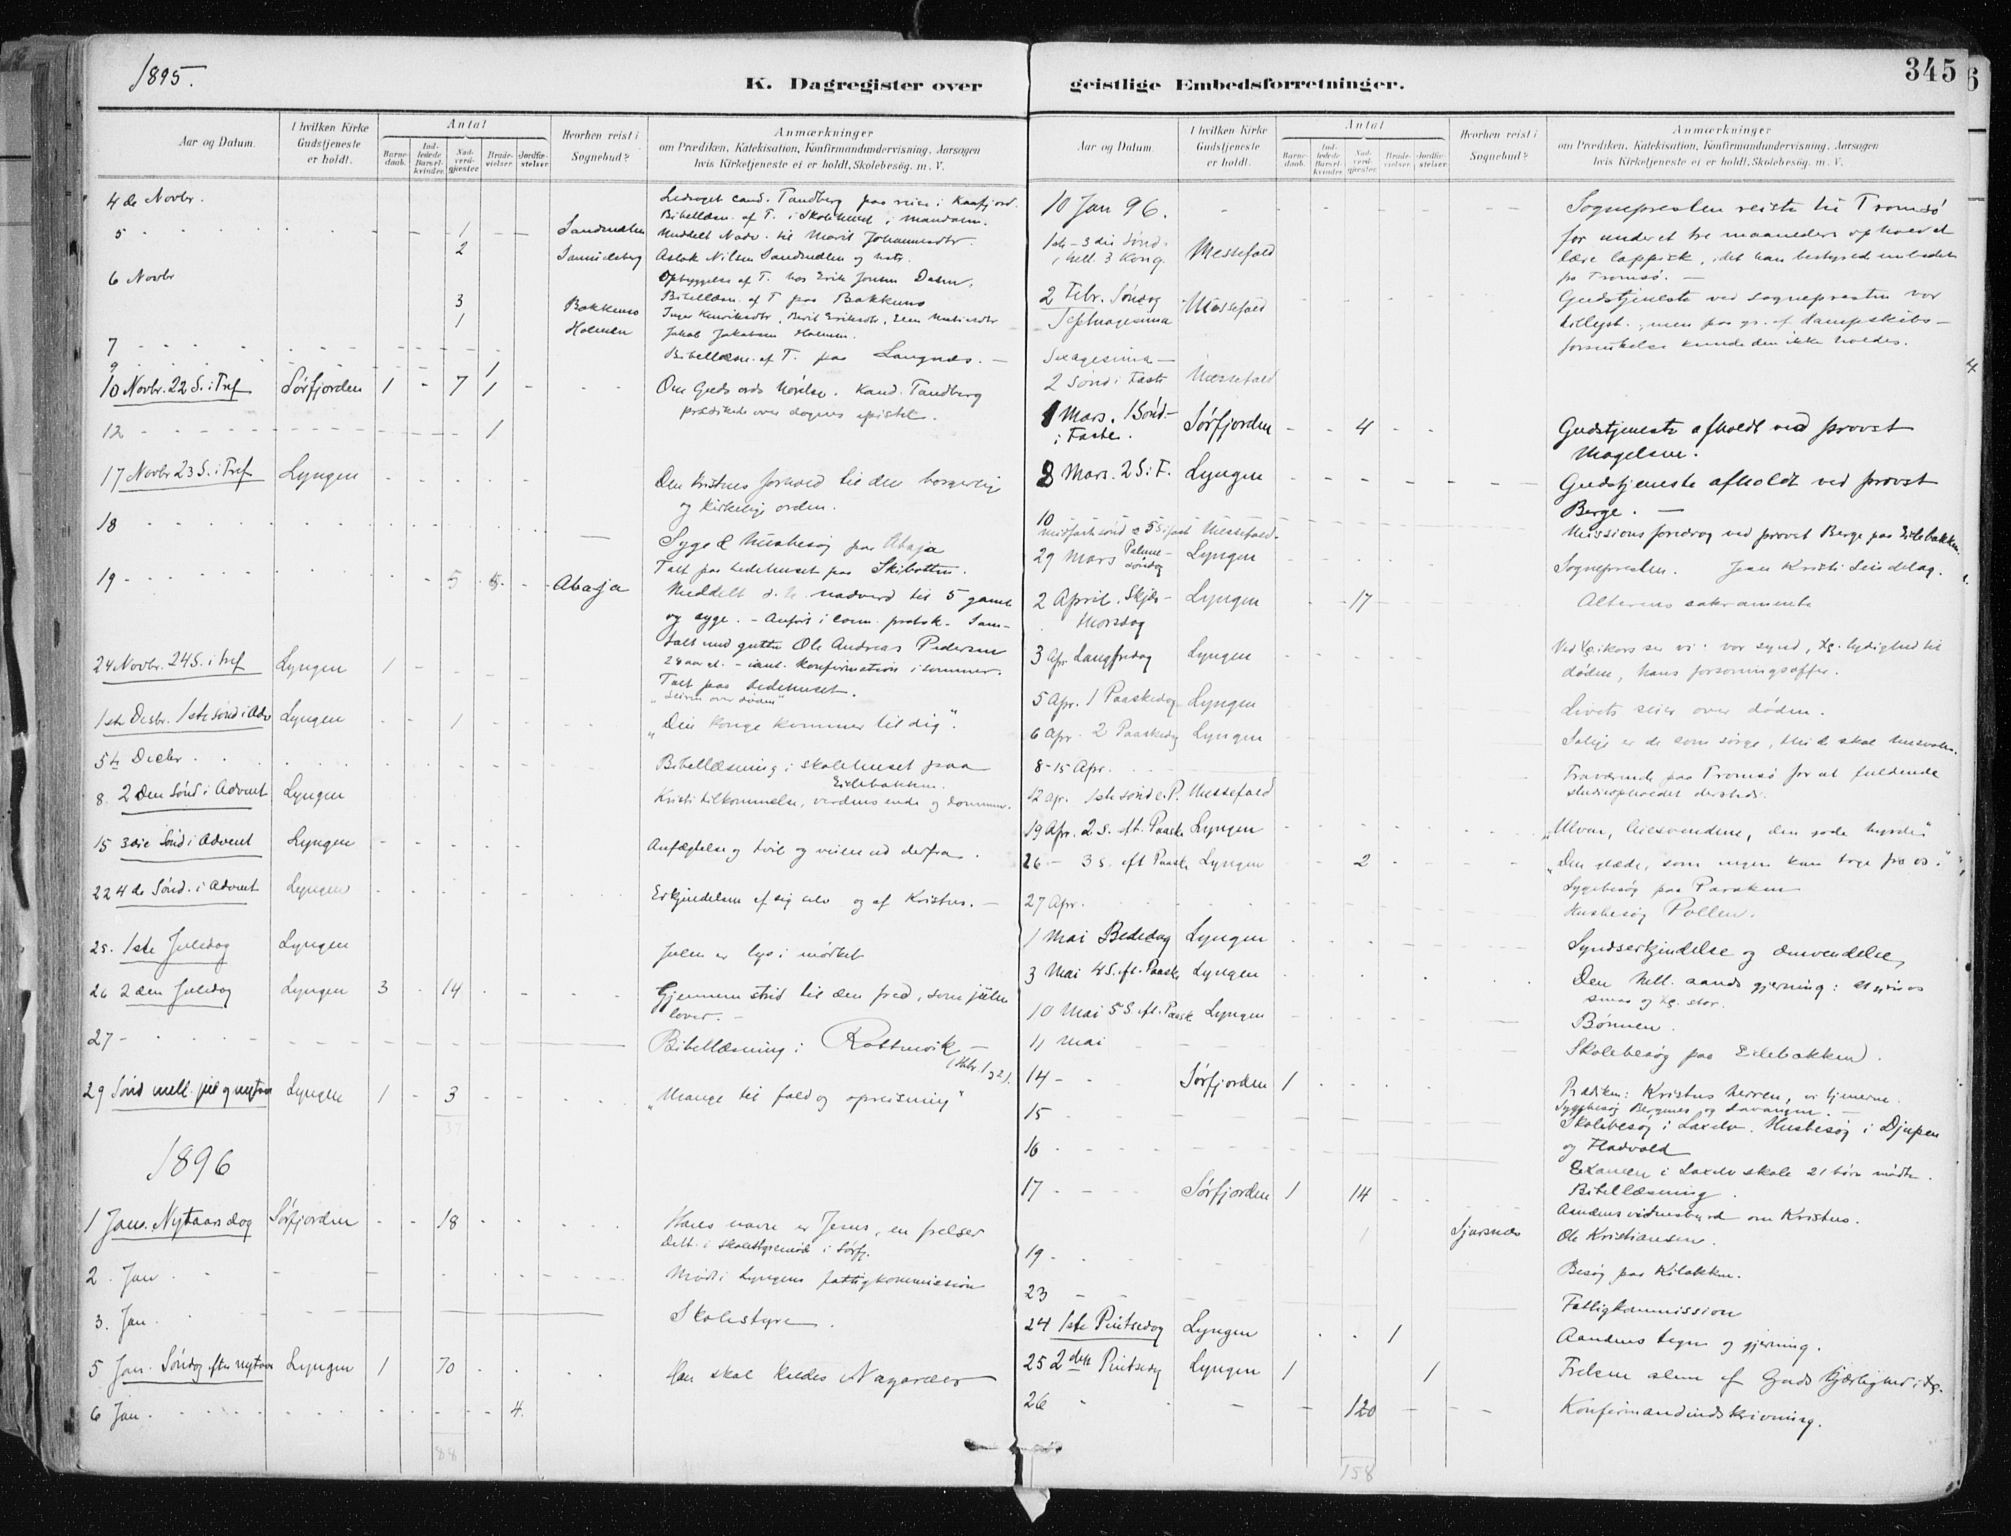 1895.
K. Dagregister over
Aar og Datum.
I hvilken Kirke Gudstjeneste er holdt.
Antal
Barne-daab.
Ind-ledede Barsel-kvinder.
Nad-verd-gjester.
Brude-vielser.
Jordfæ-stelser.
Hvorhen reist i Sognebud?
Anmærkninger
om Prædiken, Katekisation, Konfirmandundervisning, Aarsagen
hvis Kirketjeneste ei er holdt, Skolebesøg, m. V.
4de Novbr. Ledsaget cand. Tandberg paa reise i Kaafjord.
Bibellæsn. af T. i Skolehuset i Mandalen.
5 1 Meddelt Nadv. til Marit Johannesdtr.
2 Samuelsberg Aslak Nilsen og
6 Novbr Opbyggelse af T. hos Erik Jensen Dalen.
3 Bakkenes Bibellæsn. af T. paa Bakkenes
1 Holmen Inger Henriksdtr, Berit Eriksdtr,
Jakob Jakobsen Holmen.
7 Bibellæsn. af T. paa Langnes.
9 1
10 Novbr. 22 S. i Tref Sørfjorden 1 - 7 1 Om Guds ords hørelse. Kand. Tandberg
prædikede over dagens epistel.
12 1
17 Novbr 23 S. i Tref Lyngen Den kristnes forhold til den borgerlig
og kirkelig orden.
18 Syge & Husbesøg paa Abaja
Talt paa bedehuset paa Skibotten.
19 5 Abaja Meddelt d. h. nadverd til 5 gamle
og syge. - Anført i com. protok. Sam-
talt med gutten Ole Andreas Pedersen
24 Novbr. 24 S. i Tref Lyngen 1 24 aar gl. - konfirmation i sommer.
Talt paa bedehuset.
"Seiren over døden"
1ste Desbr. 1ste sønd i Adv Lyngen 1 "Din konge kommer til dig".
5te Decbr Bibellæsning i skolehuset paa
Eidebakken.
8. 2den Sønd i Advent Lyngen Kristi tilkommelse, verdens ende og dommen.
15 3die Sønd i Advent Lyngen Anfægtelse og tvil og veien ud derfra.
22 4de Sønd. i Advent Lyngen Erkjendelsen af sig selv og af Kristus.
25. 1ste Juledag Lyngen Julen er lys i mørket
26 2den Juledag Lyngen 3 - 14 Gjennem strid til den fred, som julen
lover.
27 Bibellæsning i Rottenvik
(Hbr. 1 og 2).
29 Sønd mell. jul og nytaar Lyngen 1 - 3 "Mange til fald og opreisning"
37
1896
1 Jan. Nytaarsdag Sørfjorden 18 Hans navn er Jesus, en frelser
Delt. i skolestyremøde i Sørfj.
2. Jan Møde i Lyngens fattigkommission
3. Jan Skolestyre.
5 Jan. Søndag efter nytaar Lyngen 1 70 Han skal kaldes Nazaræer
6 Jan. 4.
88
geistlige Embedsforretninger.
345
Aar og Datum.
I hvilken Kirke Gudstjeneste er holdt.
Antal
Barne-daab.
Ind-ledede Barsel-kvinder.
Nad-verd-gjester.
Brude-vielser.
Jordfæ-stelser.
Hvorhen reist i Sognebud?
Anmærkninger
om Prædiken, Katekisation, Konfirmandundervisning, Aarsagen
hvis Kirketjeneste ei er holdt, Skolebesøg, m. V.
10 Jan 96. Sognepresten reiste til Tromsø
for under et tre maaneders ophold at
1ste - 3die Sønd. Messefald lære lappisk, idet han bestyred embedet
e. hell. 3 Kong. fra Tromsø. -
2 Febr. Søndag Messefald Gudstjeneste ved sognepresten var
Septuagesima tillyst, men paa gr. af dampskibs-
forsinkelse kunde den ikke holdes.
Sexagesima -
2 Sønd i Faste Messefald
1 Mars. 1 Sønd- Sørfjorden 4 Gudstjeneste afholdt ved provst
i Faste. Mogelsen.
8 Mars. 2 S. i F. Lyngen Gudstjeneste afholdt ved provst
Berge. -
10 Missionsforedrag ved provst Berge paa Eidebakken.
Midfastesønd & 5 S i fast Messefald.
29 Mars Palme-søndag Lyngen Sognepresten. Jesu Kristi Sindelag.
2 April. Skjær-thorsdag Lyngen 17 Alterens sakramente
3 Apr Langfredag Lyngen Ved kors ser vi: vor synd, lydighed til
døden, hans forsoningsoffer.
5 Apr. 1 Paaskedag Lyngen Livets seier over døden.
6 Apr. 2 Paaskedag Lyngen Salige er de som sørge, thi de skal husvales.
8-15 Apr. Fraværende paa Tromsø for at fuldende
studieopholdet dersteds.
12 apr. 1ste sønd e. P. Messefald
19 Apr. 2 S. eft. Paaske Lyngen "Ulven, leiesvendene, den gode hyrde"
26 - 3 S. eft Paaske Lyngen 2 "Den glæde, som ingen kan tage fra os."
Sygebesøg paa
27 Apr. Husbesøg Pollen.
1 Mai Bededag Lyngen Syndserkjendelse og omvendelse
3 Mai 4 S. eft. Paaske Lyngen Den hell. aands gjerning: at gjøre os
smaa og stor.
10 Mai 5 S. eft. Paaske Lyngen Bønnen.
11 Mai Skolebesøg paa Eidebakken.
14 - Sørfjorden 1 Prædiken: Kristus herren, vi tjenerne.
15 Sygebesøg og
Skolebesøg i Laxelv. Husbesøg i Djupen
16 og
Examen i Laxelv skole 21 børn mødte.
17 Sørfjorden 1 14 Bibellæsning.
Aandens vidnesbyrd om Kristus.
1 Sjursnæs Ole Kristiansen.
19 - Besøg paa
23 Fattigkommission
24 1ste Pintsedag Lyngen 1 Aandens tegn og gjerning.
25 2den Pintsedag Lyngen 1 1 Frelsen alene af Guds kjærlighed i
26 120 Konfirmandindskrivning.
158